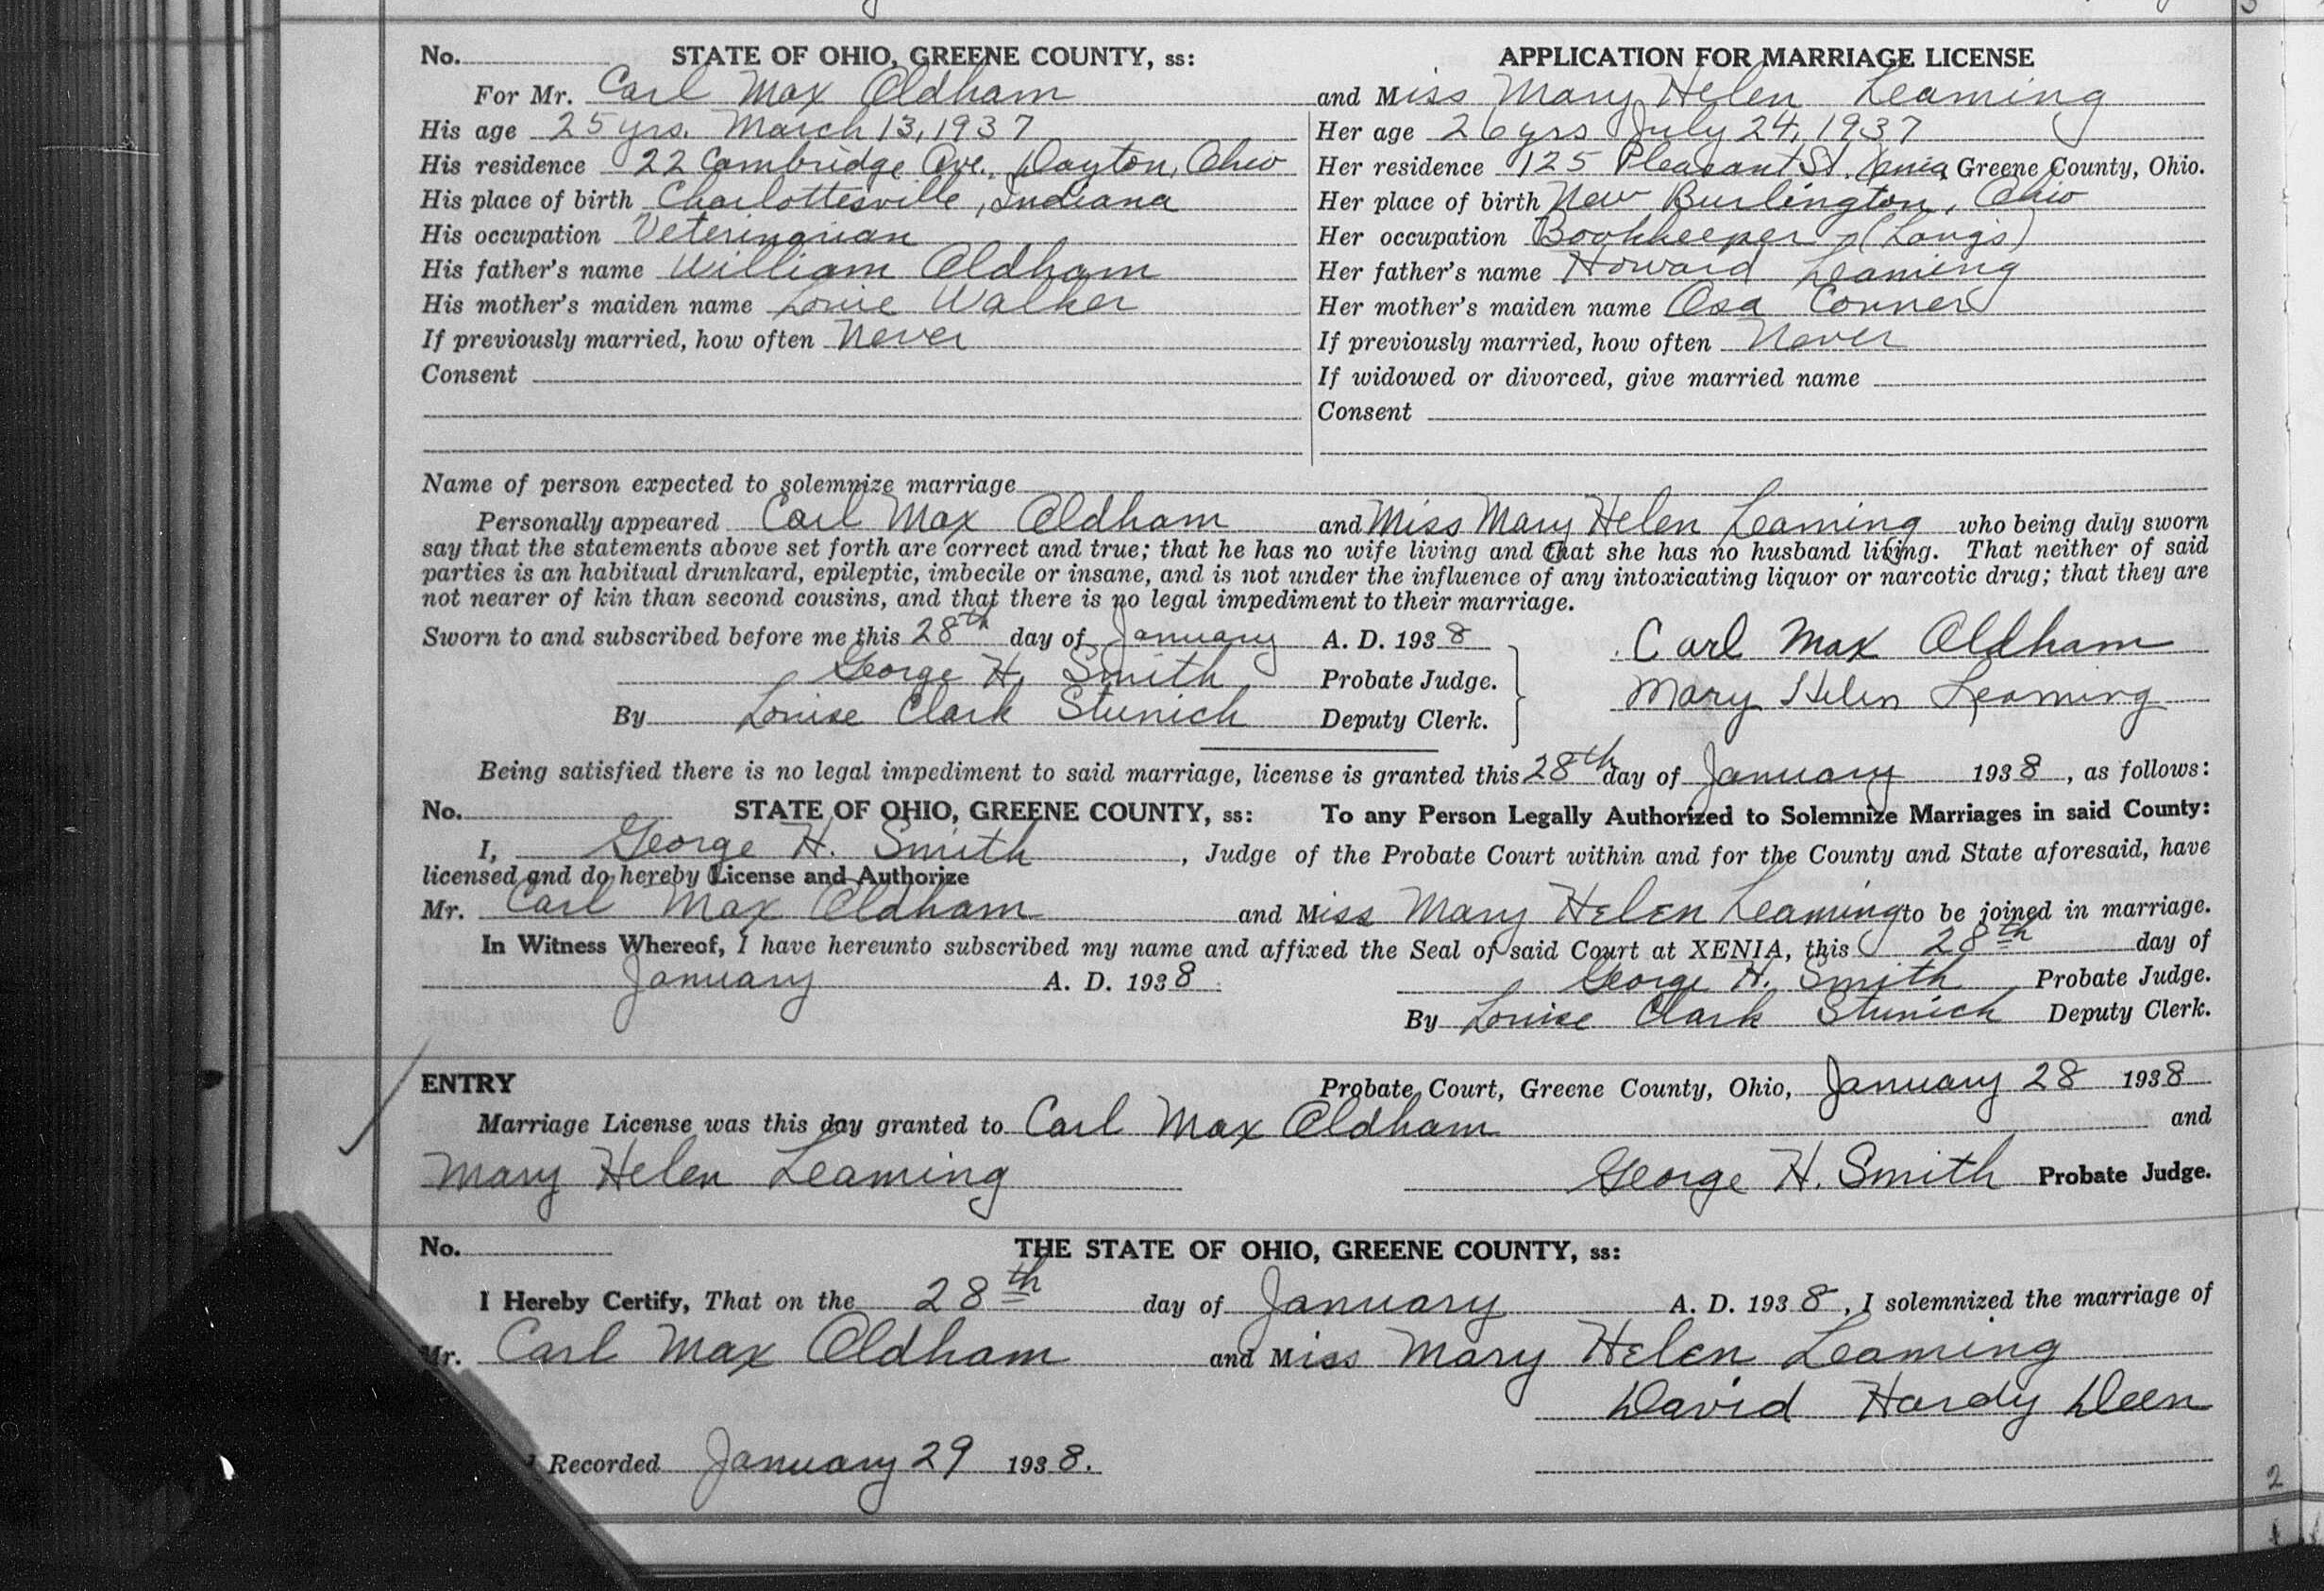 No. STATE OF OHIO, GREENE COUNTY, ss: APPLICATION FOR MARRIAGE LICENSE
For Mr. Carl Max Oldham and Miss Mary Helen Leaming
His age 25 yrs. March 13, 1937 Her age 26 yrs July 24, 1937
His residence 22 Cambridge Ave., Dayton, Ohio Her residence 125 Pleasant St. Xenia Greene County, Ohio.
His place of birth Charlottesville, Indiana Her place of birth New Burlington, Ohio
His occupation Veterinarian Her occupation Bookkeeper - (Langs)
His father's name William Oldham Her father's name Howard Leaming
His mother's maiden name Louie Walker Her mother's maiden name Osa Conner
If previously married, how often Never If previously married, how often Never
Consent If widowed or divorced, give married name
Consent
Name of person expected to solemnize marriage
Personally appeared Carl Max Oldham and Miss Mary Helen Leaming who being duly sworn
say that the statements above set forth are correct and true; that he has no wife living and that she has no husband living. That neither of said
parties is an habitual drunkard, epileptic, imbecile or insane, and is not under the influence of any intoxicating liquor or narcotic drug; that they are
not nearer of kin than second cousins, and that there is no legal impediment to their marriage.
Sworn to and subscribed before me this 28th day of January A. D. 1938 Carl Max Oldham
George H. Smith Probate Judge. Mary Helen Leaming
By Louise Clark Stunich Deputy Clerk.
Being satisfied there is no legal impediment to said marriage, license is granted this 28th day of January 1938, as follows:
No. STATE OF OHIO, GREENE COUNTY, ss: To any Person Legally Authorized to Solemnize Marriages in said County:
I, George H. Smith, Judge of the Probate Court within and for the County and State aforesaid, have
licensed and do hereby License and Authorize
Mr. Carl Max Oldham and Miss Mary Helen Leaming to be joined in marriage.
In Witness Whereof, I have hereunto subscribed my name and affixed the Seal of said Court at XENIA, this 28th day of
January A. D. 1938 George H. Smith Probate Judge.
By Louise Clark Stunich Deputy Clerk.
ENTRY Probate Court, Greene County, Ohio, January 28 1938
Marriage License was this day granted to Carl Max Oldham and
Mary Helen Leaming George H. Smith Probate Judge.
No. THE STATE OF OHIO, GREENE COUNTY, ss:
I Hereby Certify, That on the 28th day of January A. D. 1938, I solemnized the marriage of
Mr. Carl Max Oldham and Miss Mary Helen Leaming
David Hardy Deen
Recorded January 29 1938.
2